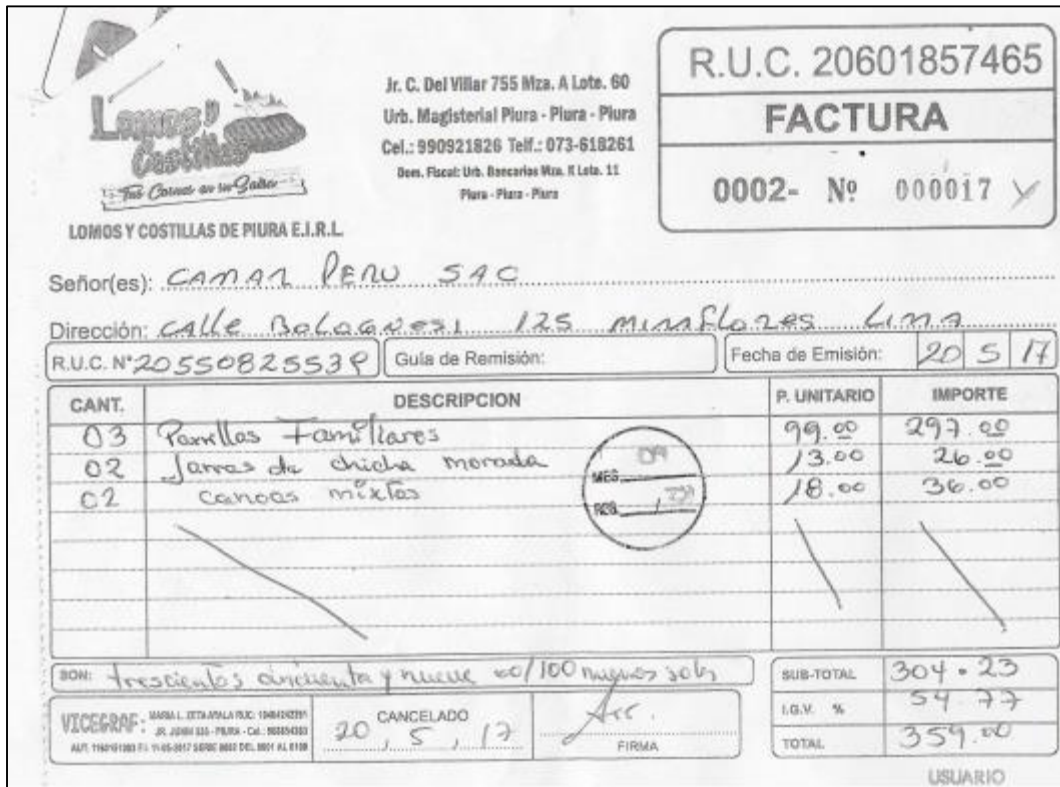 Lomos y
Costillas
Tus Carnes en su Salsa
LOMOS Y COSTILLAS DE PIURA E.I.R.L.
Jr. C. Del Villar 755 Mza. A Lote. 60
Urb. Magisterial Piura - Piura - Piura
Cel.: 990921826 Telf.: 073-618261
Dom. Fiscal: Urb. Bancarios Mza. K Lote. 11
Piura - Piura - Piura
R.U.C. 20601857465
FACTURA
0002- Nº 000017
Señor(es): CAMAR PERU SAC
Dirección: CAlle Bolognesi 125 Miraflores Lima
R.U.C. N° 20550825539 Guía de Remisión: Fecha de Emisión: 20 5 17
CANT. DESCRIPCION P. UNITARIO IMPORTE
03 Parrillas Familiares 99.00 297.00
02 Jarras de chicha morada 13.00 26.00
02 canoas mixtas 18.00 36.00
MES
REG.
SON: trescientos cincuenta y nueve 00/100 nuevos soles
SUB-TOTAL 304.23
I.G.V. % 54.77
TOTAL 359.00
VICEGRAF:
20 CANCELADO 5 17
FIRMA
USUARIO